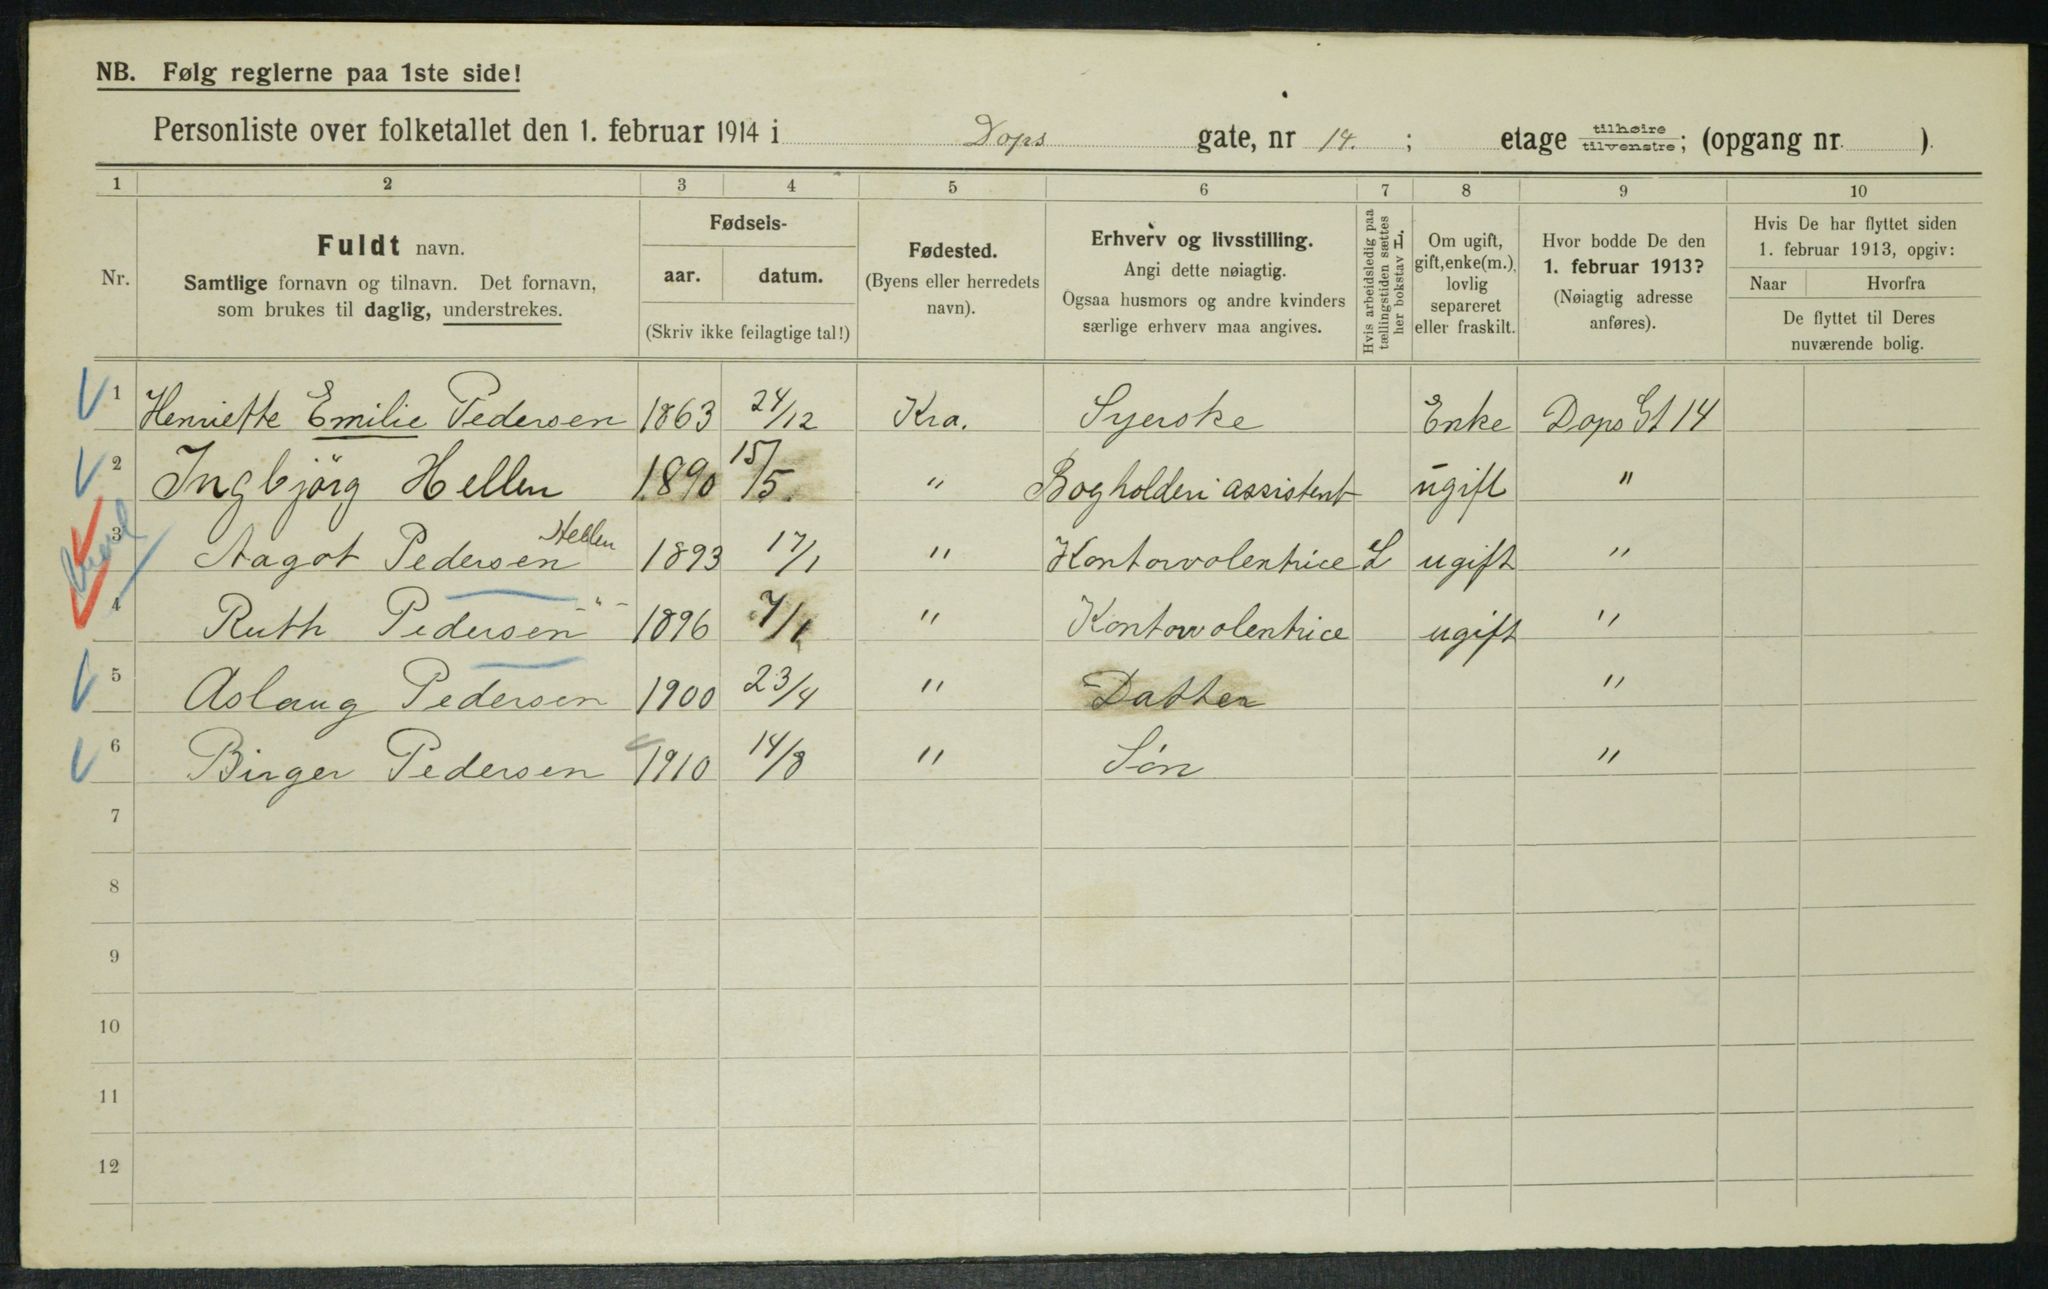 NB. Følg reglerne paa 1ste side!
Personliste over folketallet den 1. februar 1914 i Dops gate, nr 14. ; etage tilhøire tilvenstre; (opgang nr. ).
1 2 3 4 5 6 7 8 9 10
Nr.
Fuldt navn.
Samtlige fornavn og tilnavn. Det fornavn,
som brukes til daglig, understrekes.
Fødsels-
aar. datum.
(Skriv ikke feilagtige tal!)
Fødested.
(Byens eller herredets
navn).
Erhverv og livsstilling.
Angi dette nøiagtig.
Ogsaa husmors og andre kvinders
særlige erhverv maa angives.
Hvis arbeidsledig paa
tællingstiden sættes
her bokstav L.
Om ugift,
gift, enke(m.),
lovlig
separeret
eller fraskilt.
Hvor bodde De den
1. februar 1913?
(Nøiagtig adresse
anføres).
Hvis De har flyttet siden
1. februar 1913, opgiv:
Naar Hvorfra
De flyttet til Deres
nuværende bolig.
1 Henriette Emilie Pedersen 1863 24/12 Kra. Syerske Enke Dops Gt 14
2 Ingbjörg Hellen 1890 15/5. " Bogholderi assistent ugift "
3 Aagot Pedersen Hellen 1893 17/1 " Kontorvolentrice L ugift "
4 Ruth Pedersen -"- 1896 7/1 " Kontorvolentrice ugift "
5 Aslaug Pedersen 1900 23/4 " Datter "
6 Birger Pedersen 1910 14/8 " Sön "
7
8
9
10
11
12